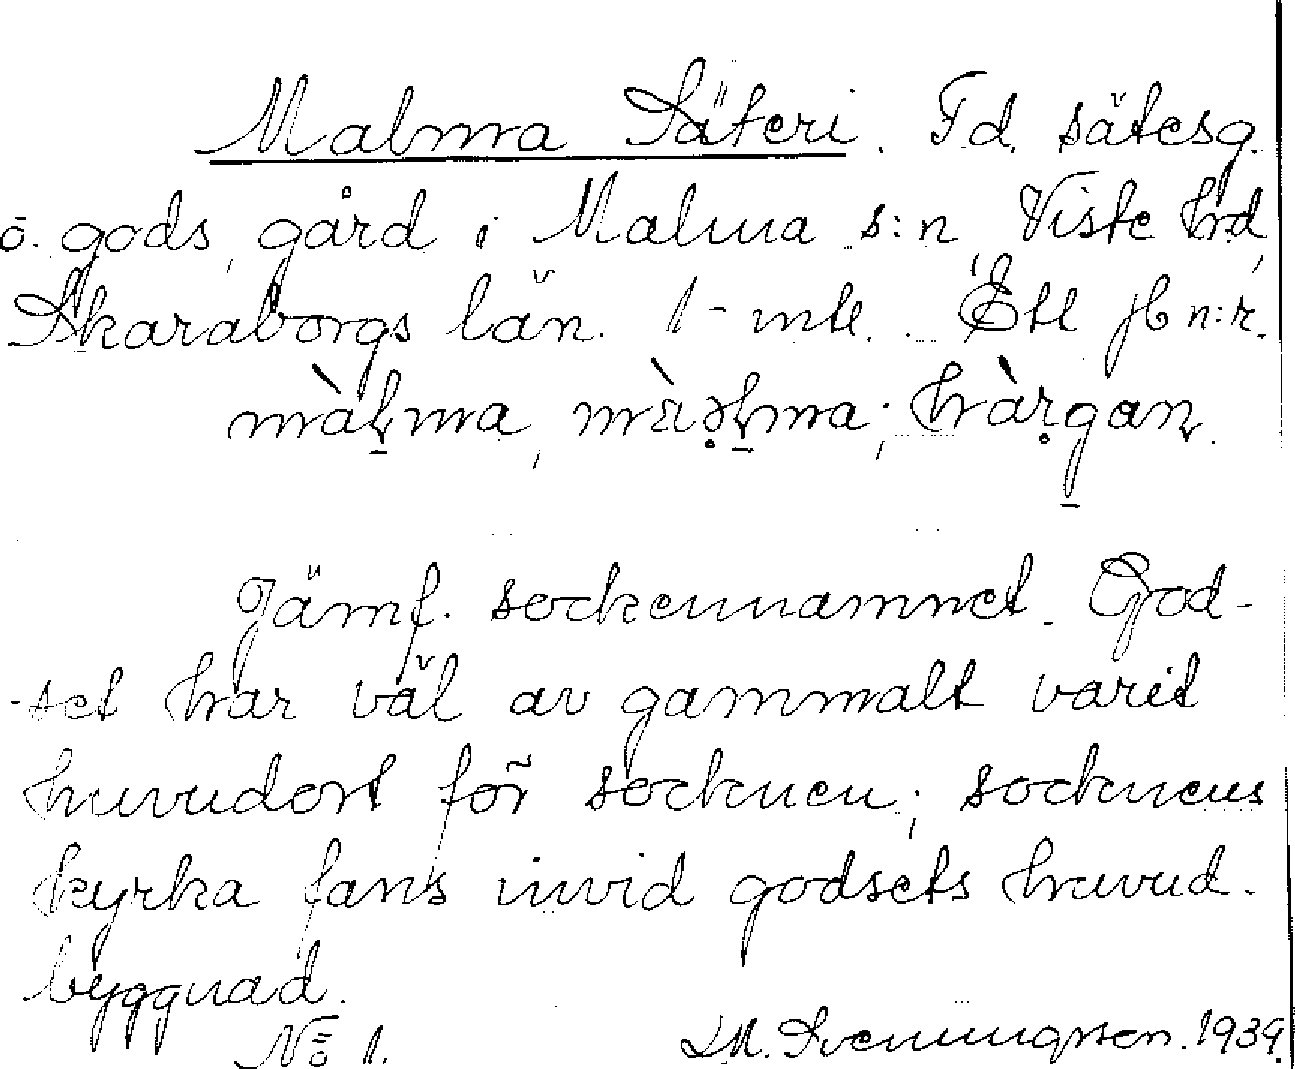 Malma Säteri. F.d. sätesg.
o. gods, gård i Malma s:n, Viste hrd,
Skaraborgs län. 1 - mtl. Ett jb n:r.
màḻma, ; hàr̥gan.
Jämf. sockennamnet. God-
-set har väl av gammalt varit
huvudort för socknen; socknens
kyrka fans invid godsets huvud-
byggnad.
No 1. Sveningsson. 1939.